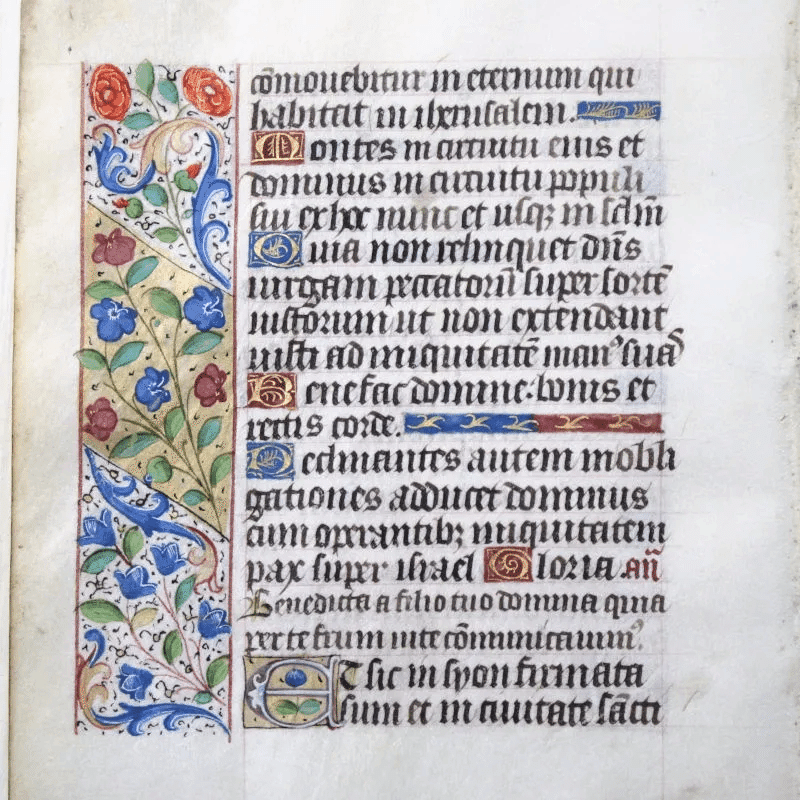 cōmovebitur in eternum qui
habitat in iherusalem.
Montes in circuitu eius et
dominus in circuitu populi
sui ex hoc nunc et usqꝫ in sclm̄
Quia non relinquet dn̄s
virgam peccatorū super sortē
iustorum ut non extendant
iusti ad iniquitatē manꝰ suas
Benefac domine bonis et
rectis corde.
Declinantes autem in obli
gationes adducet dominus
cum operantibꝫ iniquitatem
pax super israel Gloria añ
Benedicta a filio tuo domina quia
per te fructum vite cōmunicavimꝰ.
Et sic in syon firmata
sum et in civitate sācti